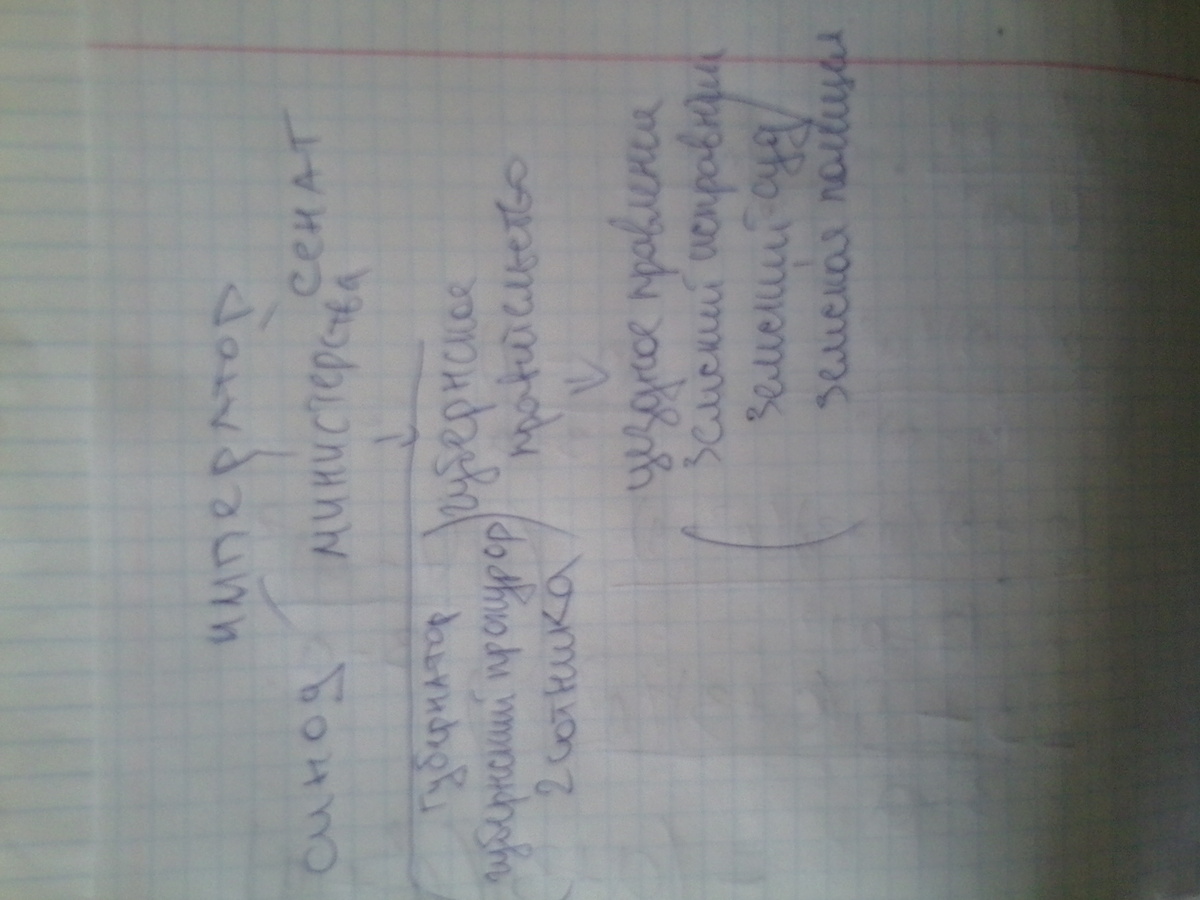 император
синод министерства сенат
губернатор
губернский прокурор
2 сотника
губернское
правительство
уездное правлении
земский исправник
земский суд
земская полиция